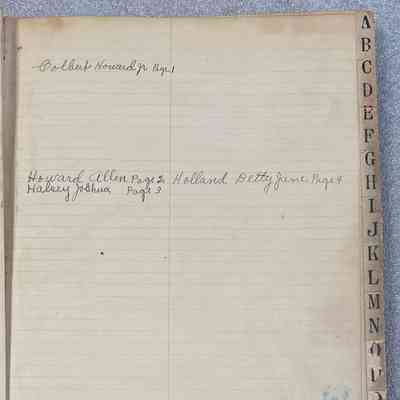 Colbert Howard Jr Page 1
Howard Allen Page 2 Holland Betty Jane Page 4
Halsey Joshua Page 3
A
B
C
D
E
F
G
H
I
J
K
L
M
N
O